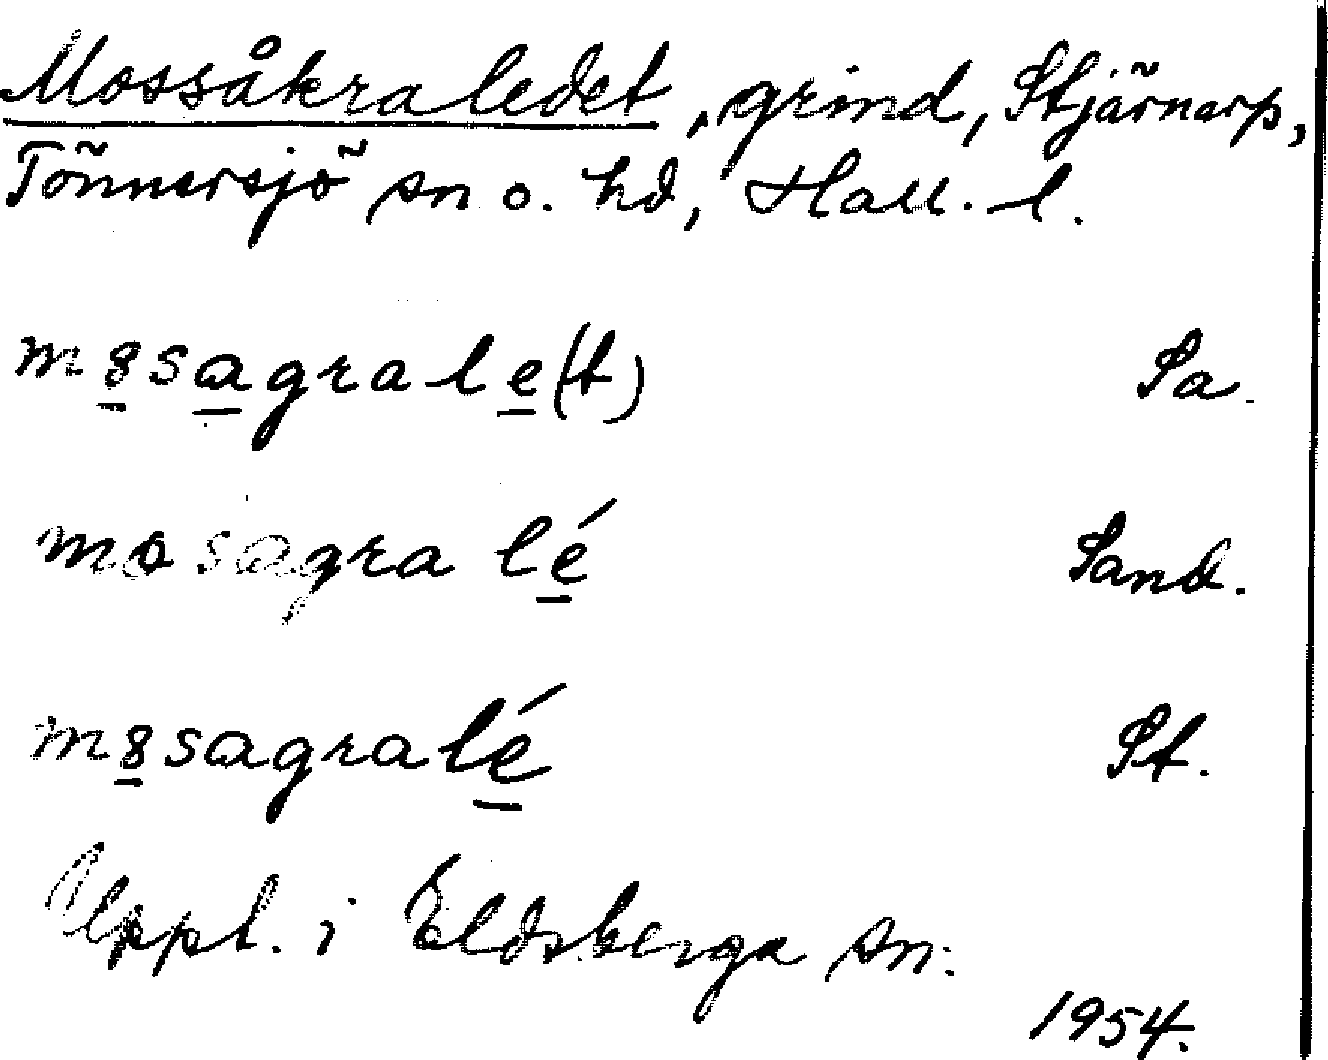 Mossåkraledet, grind, Stjärnarp,
Tönnersjö sn o. hd, Hall. l.
m8sagrale(t) Sa.
mosagra lé Sand.
m8sagralé St.
Uppt. i Eldsberga sn.
1954.